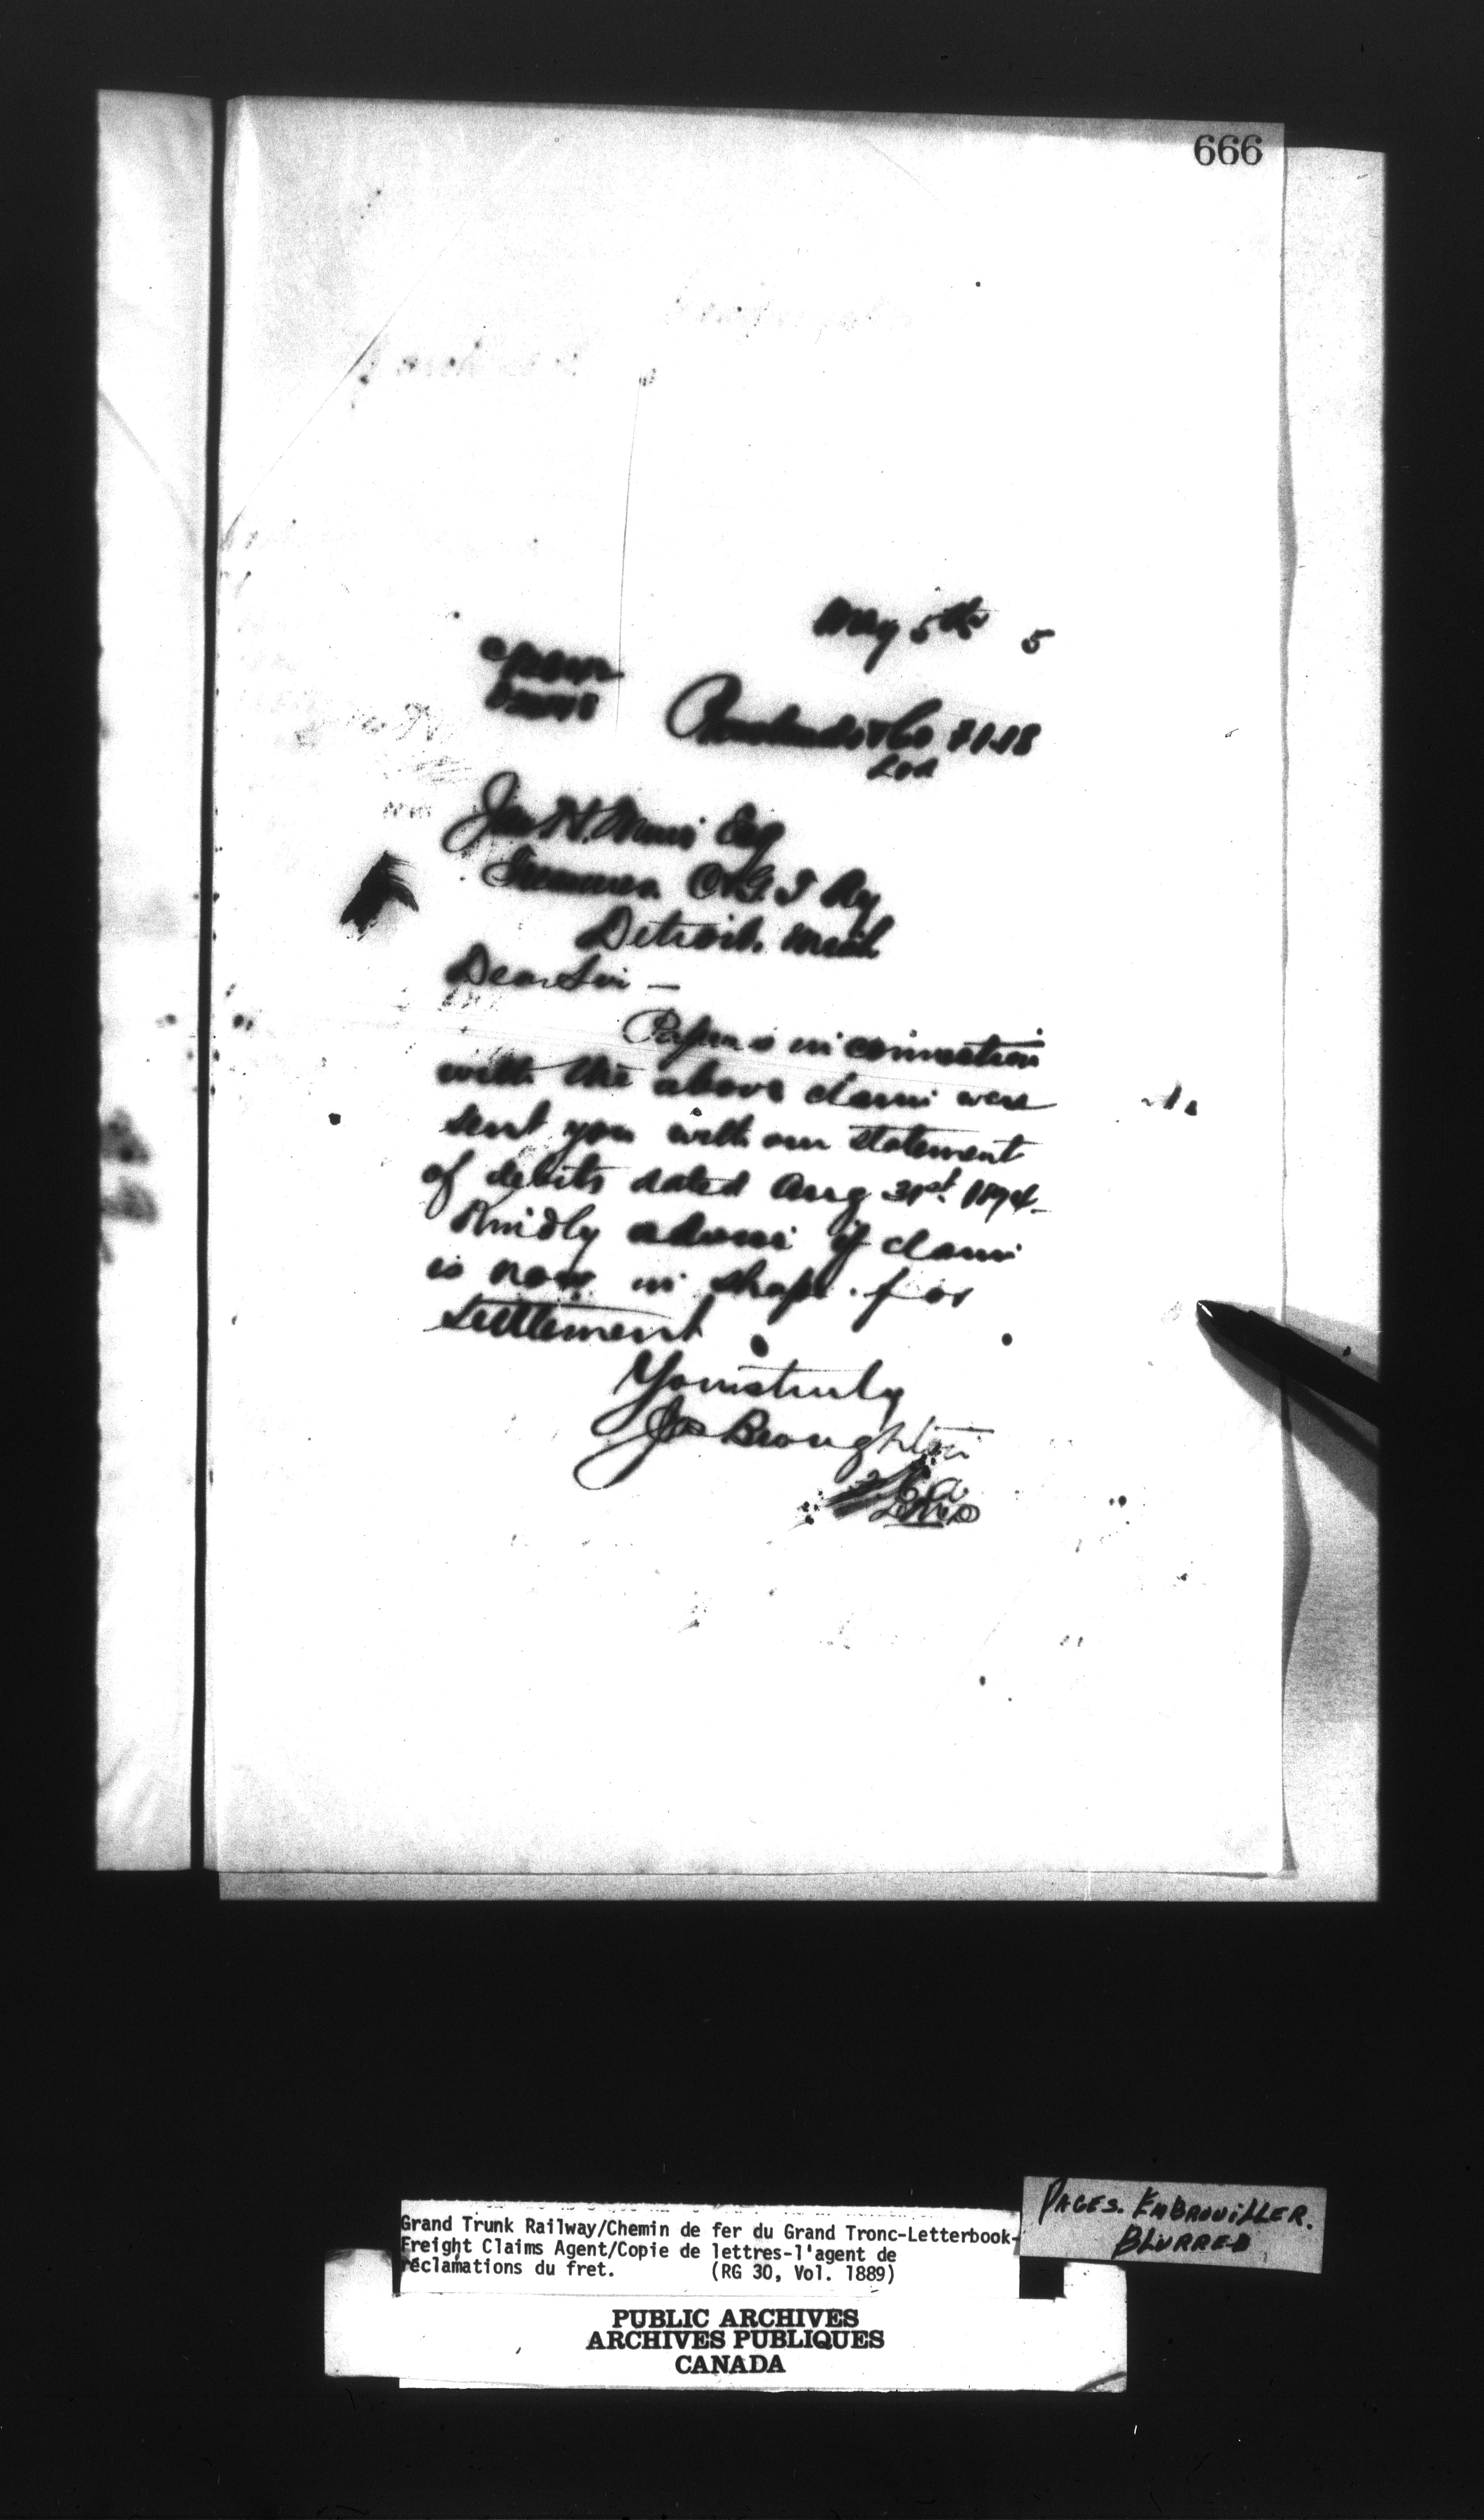 666
May 5th 5
& Co 7118
Jas H. Muir Esq
Treasurer C & G T Ry
Detroit. Mich
Dear Sir —
Papers in connection
with the above claim were
sent you with our statement
of debits dated Aug 31st. 1894
Kindly advise if claim
is now in shape for
settlement
Yours truly
Jas Broughton
F. C. A.
Grand Trunk Railway/Chemin de fer du Grand Tronc-Letterbook-
Freight Claims Agent/Copie de lettres-l'agent de
réclamations du fret. (RG 30, Vol. 1889)
PAGES. EMBROUILLER.
BLURRED
PUBLIC ARCHIVES
ARCHIVES PUBLIQUES
CANADA